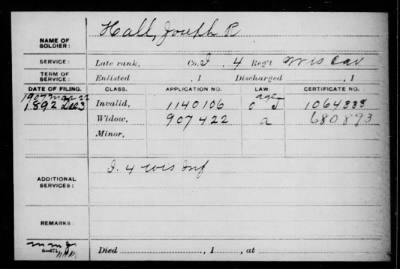 NAME OF SOLDIER: Hall, Joseph R
SERVICE: Late rank, Co. I, 4 Reg't Wis Cav
TERM OF SERVICE: Enlisted , 1 Discharged , 1
DATE OF FILING. CLASS. APPLICATION NO. LAW. CERTIFICATE NO.
1892 Invalid, 1140106 1064338
Widow, 907422 a 680893
Minor,
ADDITIONAL SERVICES: I. 4 Wis Inf
REMARKS:
Died , 1 , at